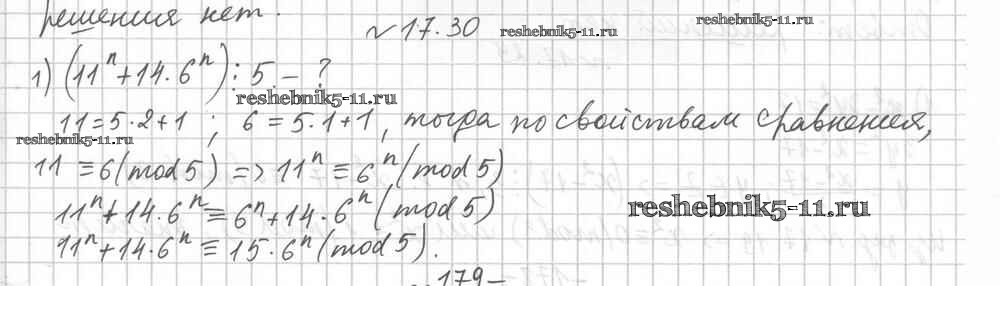 решения нет.
№17.30
reshebnik5-11.ru
reshebnik5-11.ru
1) (11ⁿ+14·6ⁿ)⋮5 – ?
reshebnik5-11.ru
11=5·2+1 ; 6=5·1+1, тогда по свойствам сравнения,
reshebnik5-11.ru
11 ≡ 6(mod 5) => 11ⁿ ≡ 6ⁿ(mod 5)
11ⁿ+14·6ⁿ ≡ 6ⁿ+14·6ⁿ(mod 5)
reshebnik5-11.ru
11ⁿ+14·6ⁿ ≡ 15·6ⁿ(mod 5).
179–